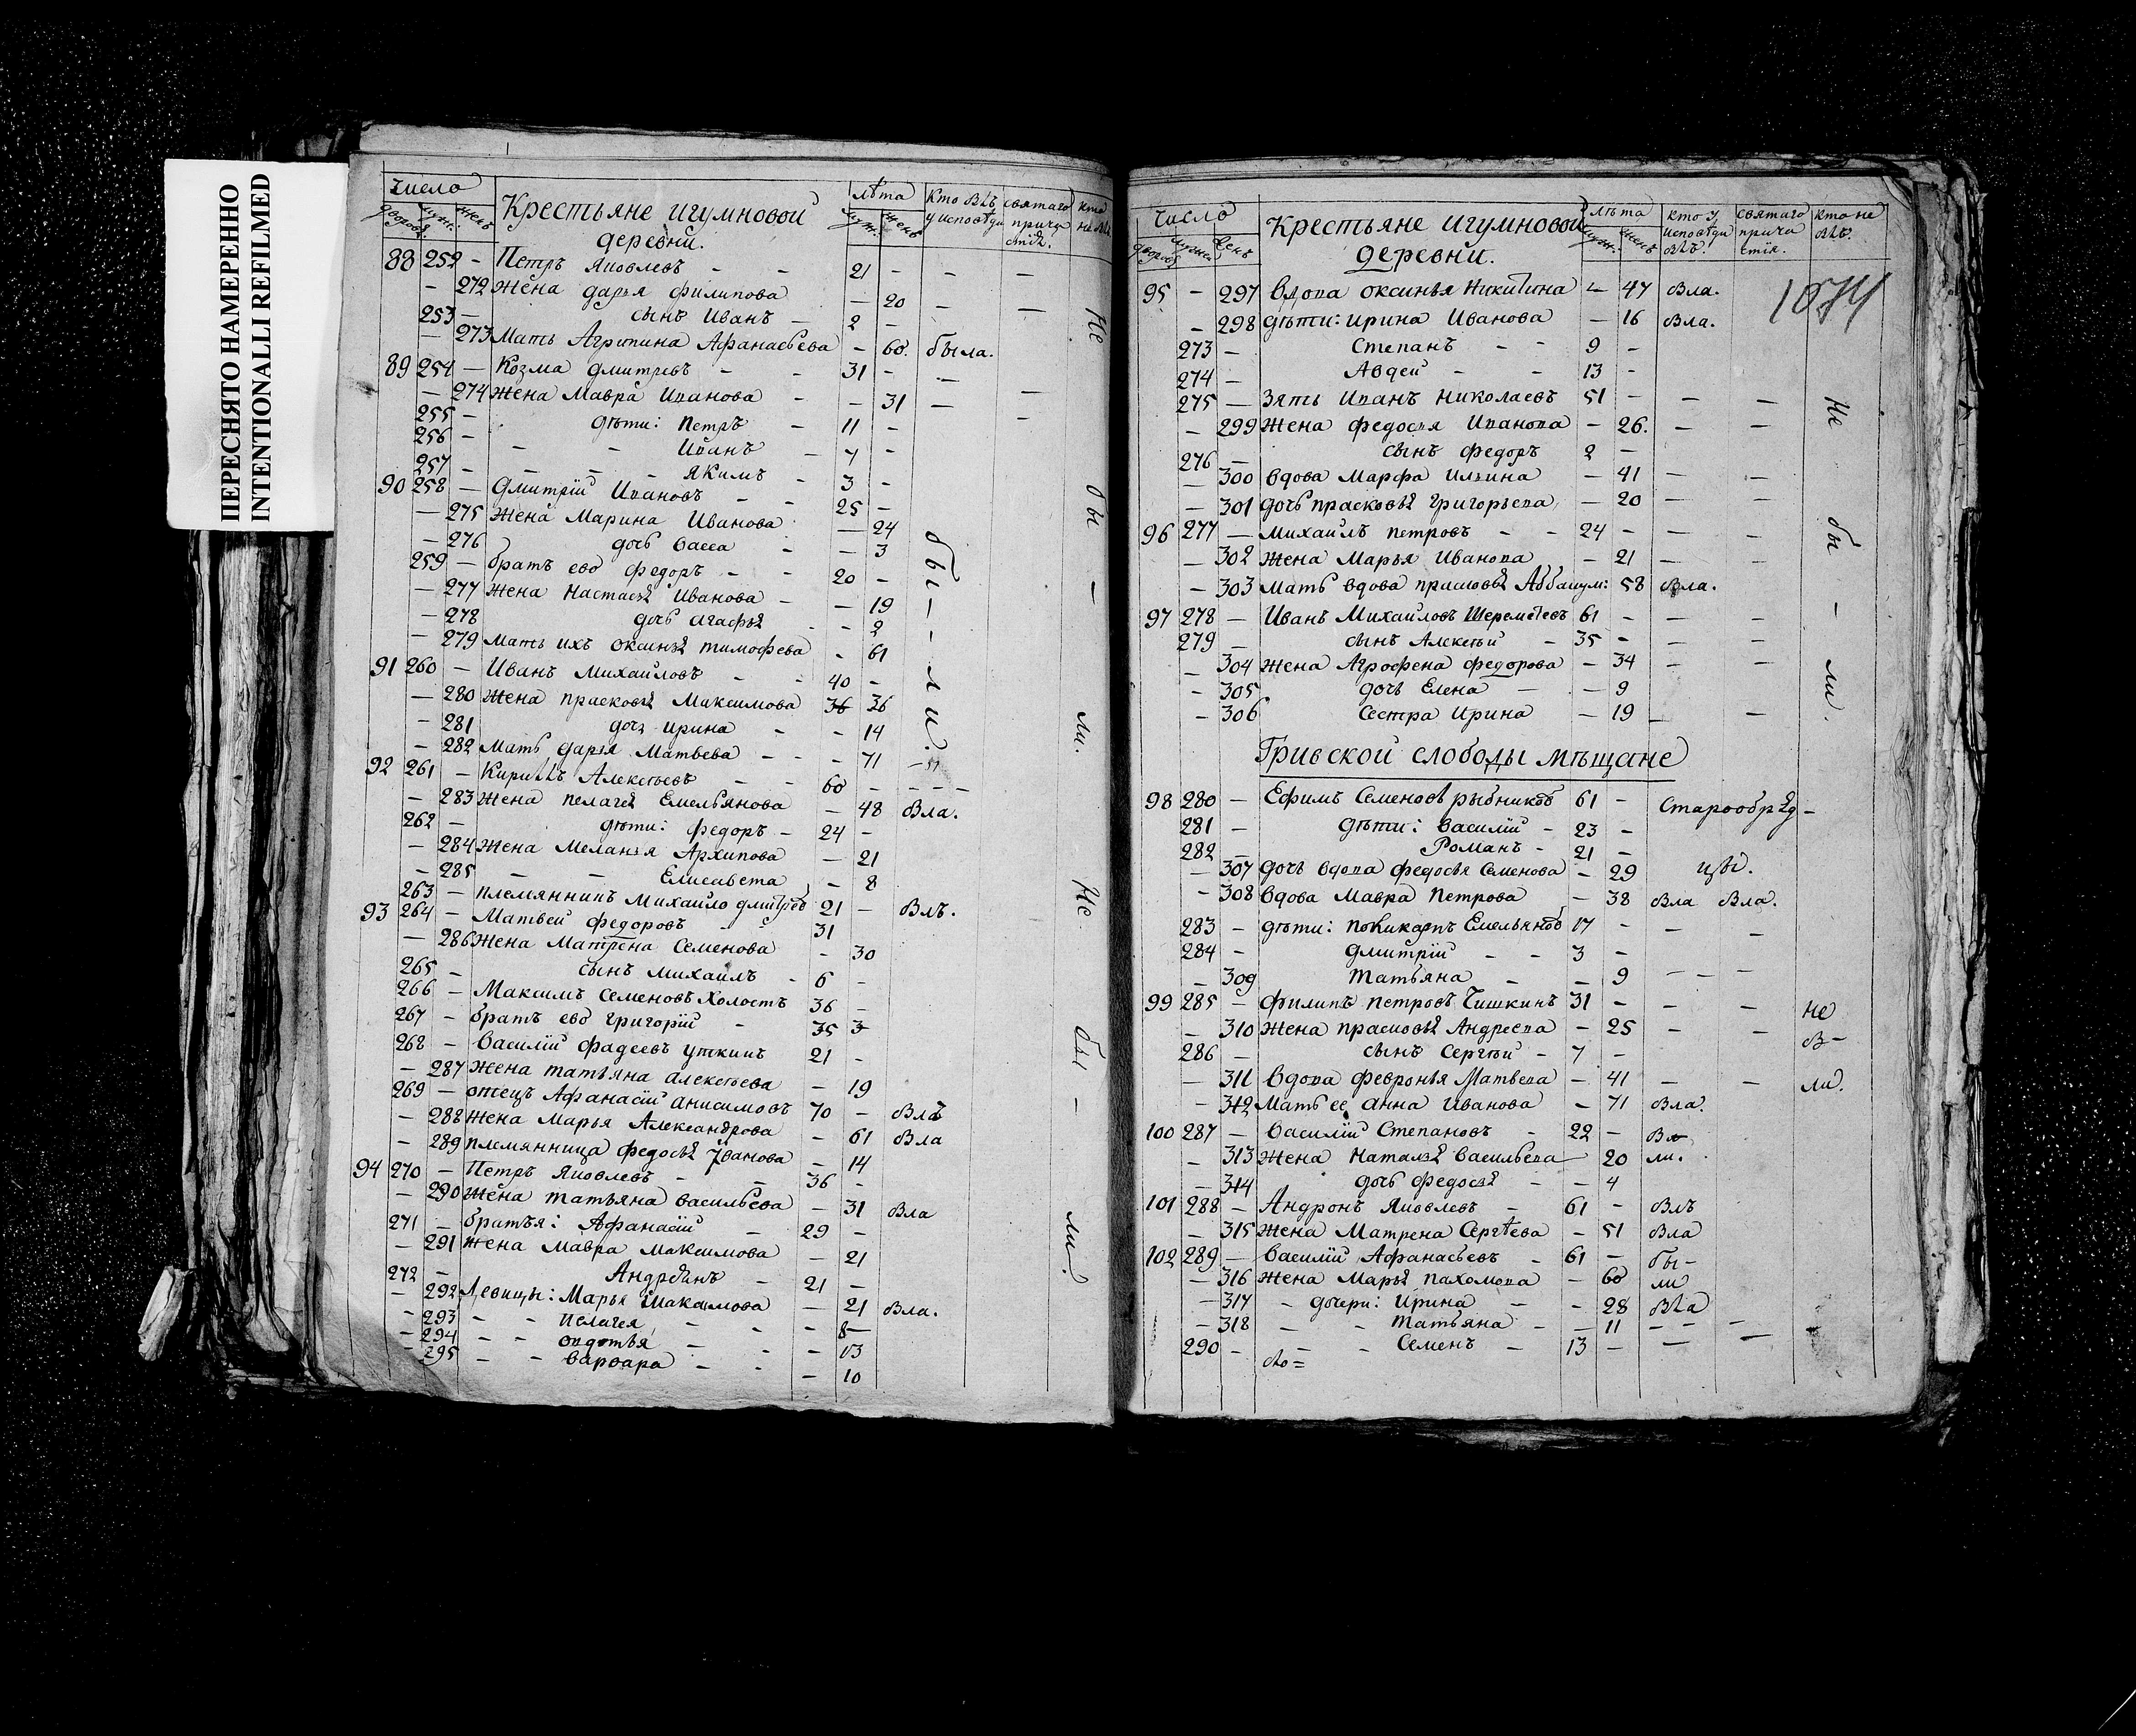 ПЕРЕСНЯТО НАМЕРЕННО
INTENTIONALLI REFILMED
Число
дворовъ муж. женъ
Крестьяне игумновой
деревни.
лѣта
муж. женъ
кто былъ
у исповѣди
святаго
прича
стія.
кто
не был
88 252 - Петръ Яковлевъ - - 21 - - -
- 272 Жена дарья филипова - 20 - -
253 - сынъ Иванъ - 2 -
- 273 Мать Агрипина Афанасьева - 60. была.
89 254 - Козма дмитревъ - - 31 - - -
- 274 Жена Мавра Иванова - - 31 - -
255 - дѣти: Петръ - 11 -
256 - - - Иванъ - 4 -
257 - - - - якимъ - 3 -
90 258 - Дмитрій Ивановъ - - 25 -
- 275 Жена Марина Иванова - 24
- 276 дочь васса - - 3
259 - братъ ево федоръ - - 20 -
- 277 Жена Настасья Иванова - - 19
- 278 дочь агафья - - 2
- 279 Мать ихъ оксинья тимофева - 61
91 260 - Иванъ Михайловъ - - 40 -
- 280 Жена прасковья Максимова 36 36
- 281 дочь ирина - - 14
- 282 Мать дарья Матвева - - - 71
92 261 - Кирилъ Алексѣевъ - - 60 - - - -
- 283 Жена пелагея Емельянова - 48 была.
262 - дѣти: федоръ - 24 -
- 284 Жена Меланья Архипова - 21
- 285 - - Елисавета - 8
263 - племянникъ Михайло дмитрев 21 - былъ.
93 264 - Матвей федоровъ - 31
- 286 Жена Матрена Семенова - 30
265 - сынъ Михаилъ - 6 -
266 - Максимъ Семеновъ Холостъ 36 -
267 - братъ ево григорій - 35 3
268 - василій фадеевъ уткинъ 21 -
- 287 Жена татьяна алексѣева - 19
269 - отецъ Афанасій анисимовъ 70 - былъ
- 288 Жена Марья Александрова - 61 была
- 289 племянница федосья Іванова - 14
94 270 - Петръ Яковлевъ - - 36 -
- 290 Жена татьяна васильева - 31 была
271 - братья: Афанасій - 29 -
- 291 Жена Мавра Максимова - 21
272 - Андреянъ - 21 -
- 292 Девицы: Марья Максимова - 21 была.
- 293 - - Пелагея - - - 8
- 294 - - овдотья - - - 13
- 295 - - варвара - - - 10
бы - - ли.
Не бы - ли. Не бы - ли.
Число
дворовъ мужес женъ
Крестьяне игумновой
деревни.
лѣта
муж. женъ
кто у
исповѣди
былъ.
святаго
прича
стія.
кто не
былъ.
1074
95 - 297 вдова оксинья Никитина - 47 была.
- 298 дѣти: ирина Иванова - 16 была.
273 - Степанъ - - 9 -
274 - Авдей - - 13 -
275 - Зять Иванъ Николаевъ 51 - - -
- 299 Жена федосья Иванова - 26. - -
276 - сынъ федоръ 2 -
- 300 вдова Марфа Ильина - 41 - -
- 301 дочь прасковья григорьева - 20 - -
96 277 - Михайлъ петровъ - - 24 - - -
- 302 Жена Марья Иванова - 21 - -
- 303 Мать вдова прасковья Аввакум: 58 была.
97 278 - Иванъ Михайловъ Шереметевъ 61 - - -
279 - сынъ Алексѣй - 35 - - -
- 304 Жена Агрофена федорова - 34 - -
- 305 дочь Елена - - 9
- 306 Сестра Ирина - 19 - -
Не бы - ли.
Гривской слободы мѣщане
98 280 - Ефимъ Семеновъ рыбниковъ 61 - старообряд-
281 - дѣти: василій - 23 -
282 - Романъ - 21 -
- 307 дочь вдова федосья Семенова - 29 цы.
- 308 вдова Мавра Петрова - 38 была была.
283 - дѣти: поликарпъ Емельяновъ 17 - - -
284 - дмитрій - - 3 -
- 309 татьяна - - 9 - - -
99 285 - филипъ петровъ Чишкинъ 31 - - - не
- 310 Жена прасковья Андреева - 25 - - б-
286 - сынъ Сергѣй - 7 -
- 311 вдова февронья Матвева - 41 - - ли.
- 312 Мать ее анна Иванова - 71 была.
100 287 - василій Степановъ - 22 - бы
- 313 Жена Наталья васильева 20 ли.
- 314 дочь федосья - - 4
101 288 - Андронъ Яковлевъ - 61 - былъ
- 315 Жена Матрена Сергѣева - 51 была
102 289 - василій Афанасьевъ - 61 - бы-
- 316 Жена Марья пахомова - 60 ли
- 317 - дочери: Ирина - - 28 была
- 318 - - татьяна - - 11 - - -
290 - - - Семенъ - 13 - - -